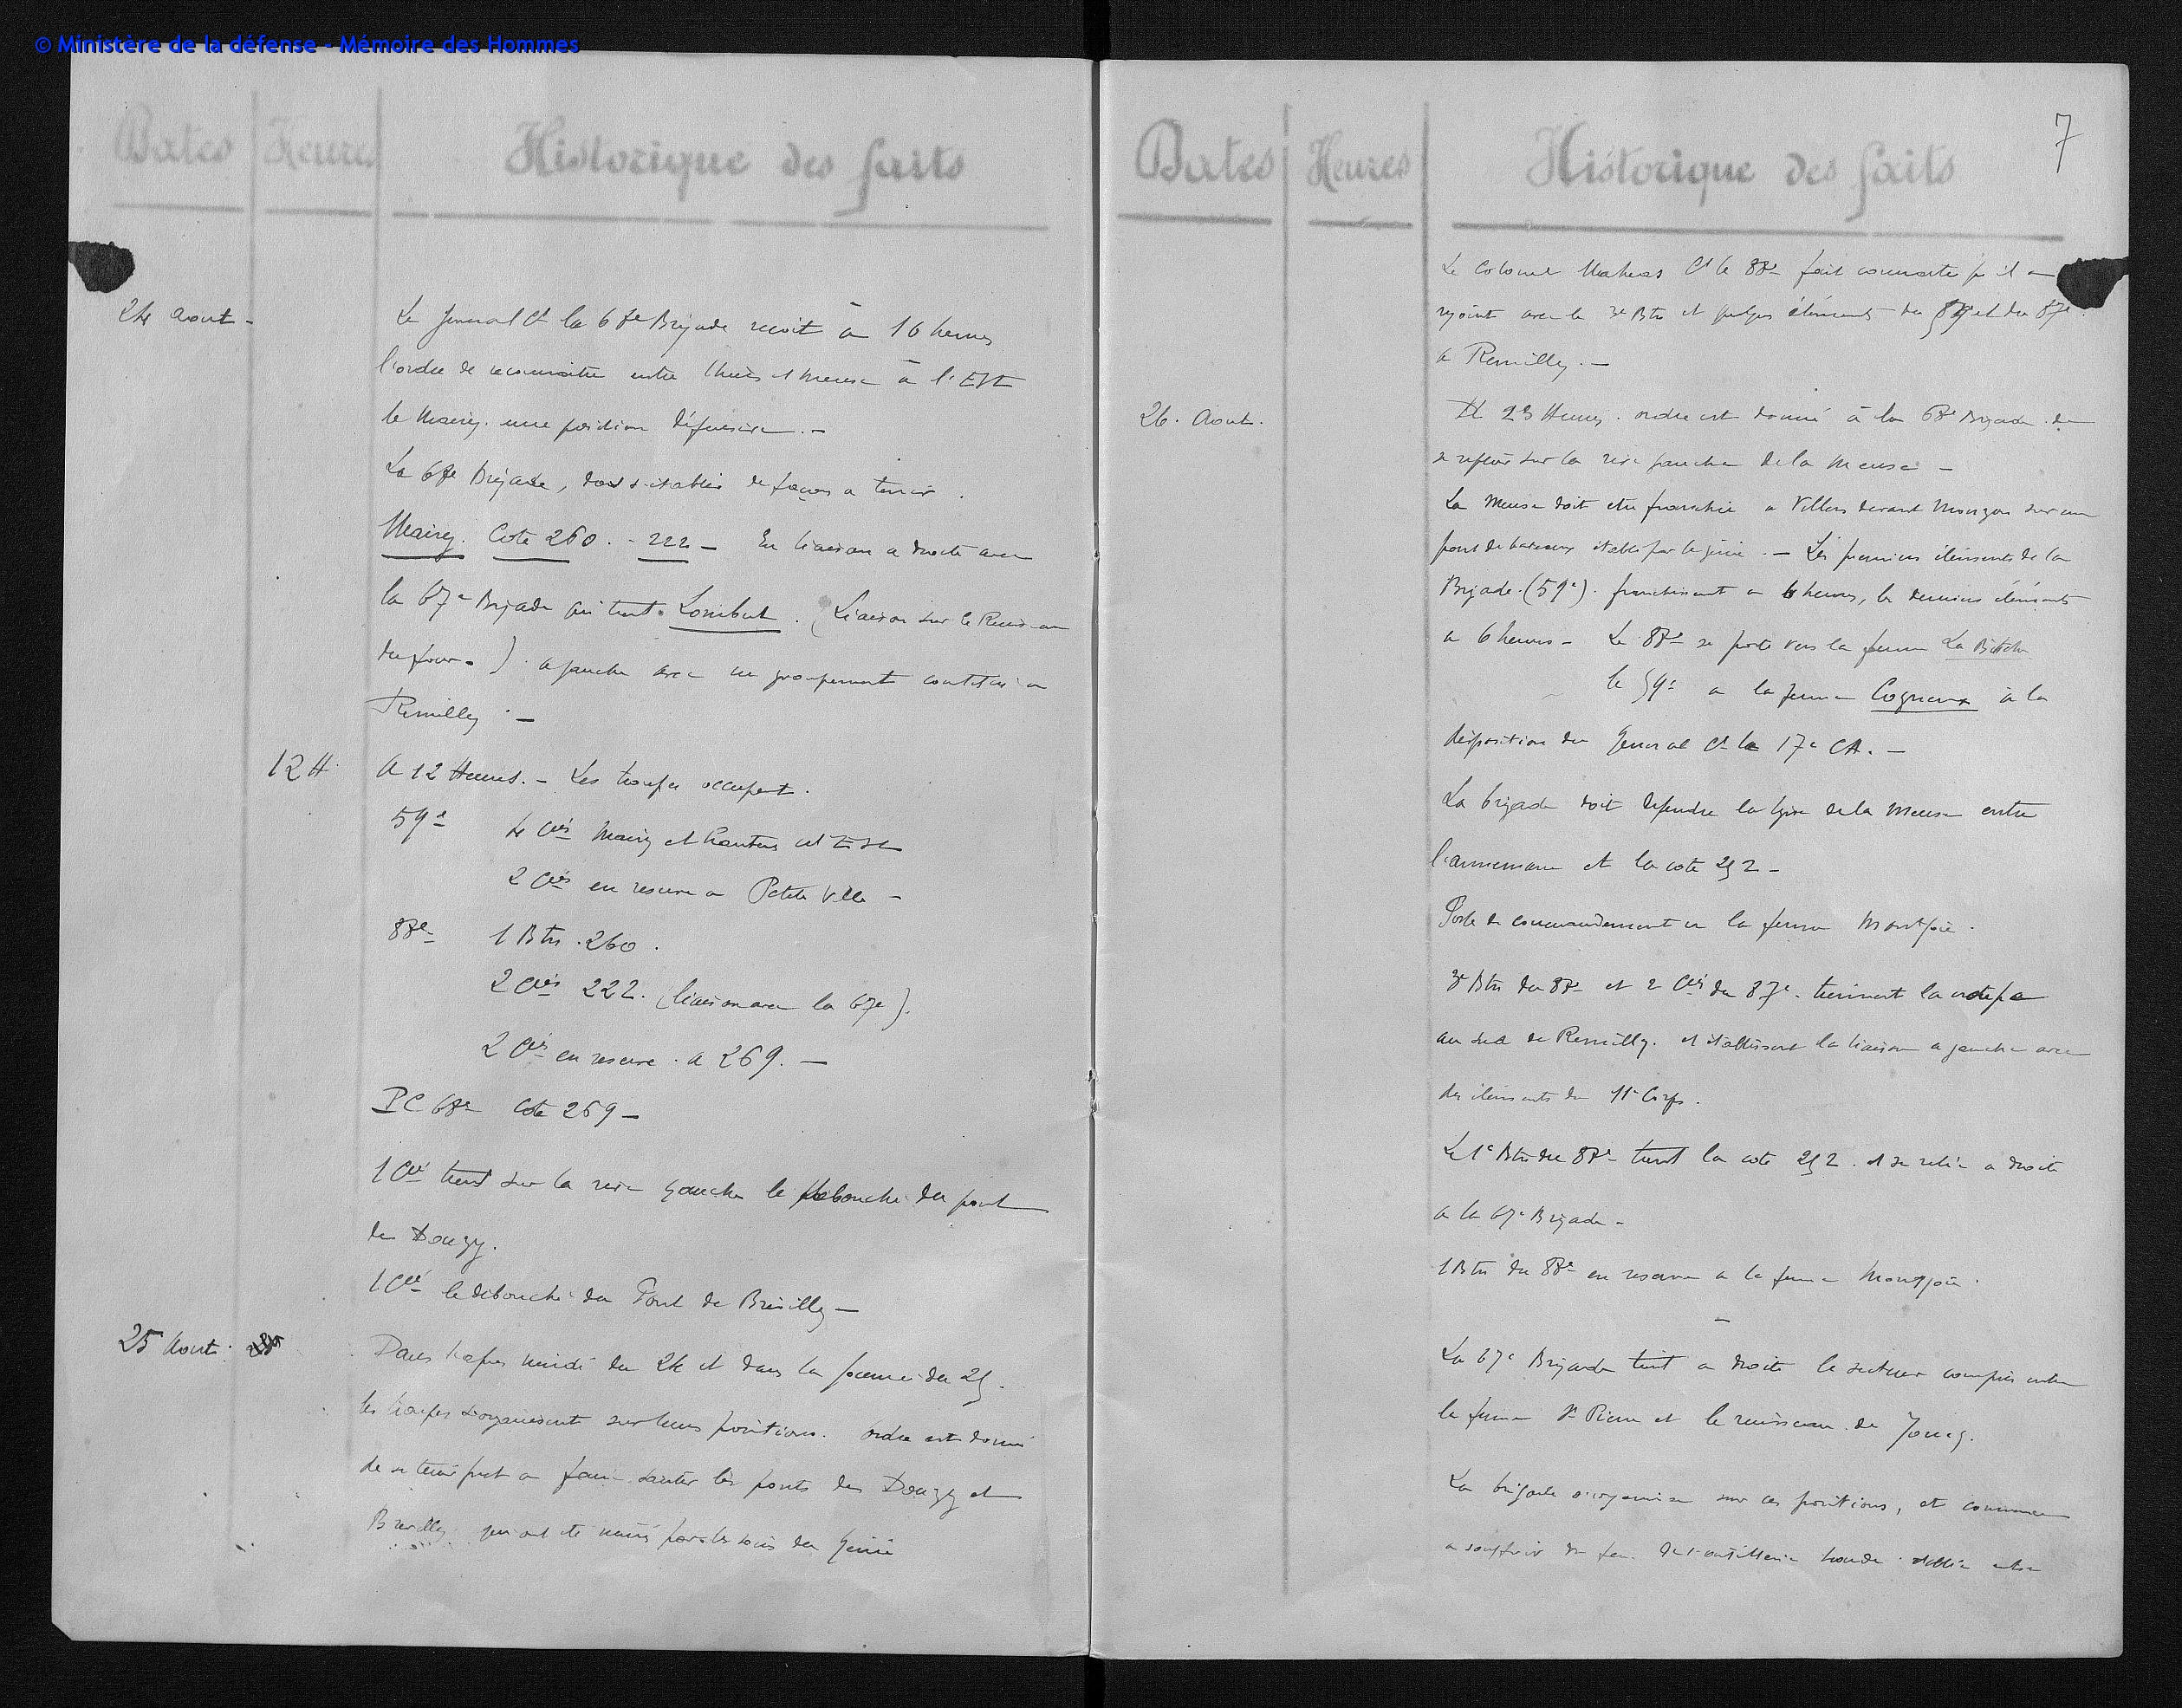 © Ministère de la défense - Mémoire des Hommes
Dates Heures Historique des faits
24 Aout -
Le General Ct la 68e Brigade reçoit à 16 heures
l'ordre de reconnaitre entre Chiers et Meuse à l'Est
de Mairy. une position défensive. -
La 68e Brigade, doit s'établir de façon a tenir.
Mairy. Cote 260. - 222 - En liaison a droite avec
la 67e Brigade qui tient Lombut. (Liaison sur le Ruisseau
du four.) a gauche avec un groupement constitué a
Remilly -
12 H.
A 12 Heures. - Les troupes occupent.
59e 4 Cies Mairy et hauteurs a l'Est
2 Cies en reserve a Petite Ville -
88e 1 Btn. 260.
2 Cies 222. (liaison avec la 67e).
2 Cies en reserve. a 269. -
PC 68e Cote 269 -
1 Cie tient sur la rive gauche le debouché du pont
de Douzy.
1 Cie le débouché du Pont de Brévilly -
25 Aout.
Dans l'apres midi du 24 et dans la journée du 25.
les troupes s'organisent sur leurs positions. ordre est donné
de se tenir pret a faire sauter les ponts de Douzy et
Brevilly qui ont été minés par les soins du Génie
Dates Heures Historique des faits
7
Le Colonel Mahéas Ct le 88e fait connaitre qu'il a
rejoint avec le 3e Btn et quelques éléments du 59 et du 87e.
a Remilly. -
26. Aout.
A 23 Heures. ordre est donné à la 68e Brigade de
se replier sur la rive gauche de la Meuse -
La Meuse doit etre franchie a Villers devant Mouzon sur un
pont de bateaux établi par le génie. - Les premiers éléments de la
Brigade. (59e). franchissent a heures, les derniers éléments
a 6 heures - Le 88e se porte vers la ferme La
le 59e a la ferme Cogneux à la
disposition du General Ct le 17e CA. -
La brigade doit defendre la ligne de la Meuse entre
l'annemane et la cote 252 -
Poste de commandement a la ferme Montjoie.
3e Btn du 88e et 2 Cies du 87e. tiennent la croupe
au sud de Remilly. et établissent la liaison a gauche avec
des éléments du 11e Corps.
Le 1e Btn du 88e tient la cote 252. et se relie a droite
a la 67e Brigade -
1 Btn du 88e en reserve a la ferme Montjoie.
-
La 67e Brigade tient a droite le secteur compris entre
la ferme St Pierre et le ruisseau de Yoncq.
La brigade s'organise sur ces positions, et commence
a souffrir du feu de l'artillerie lourde établie